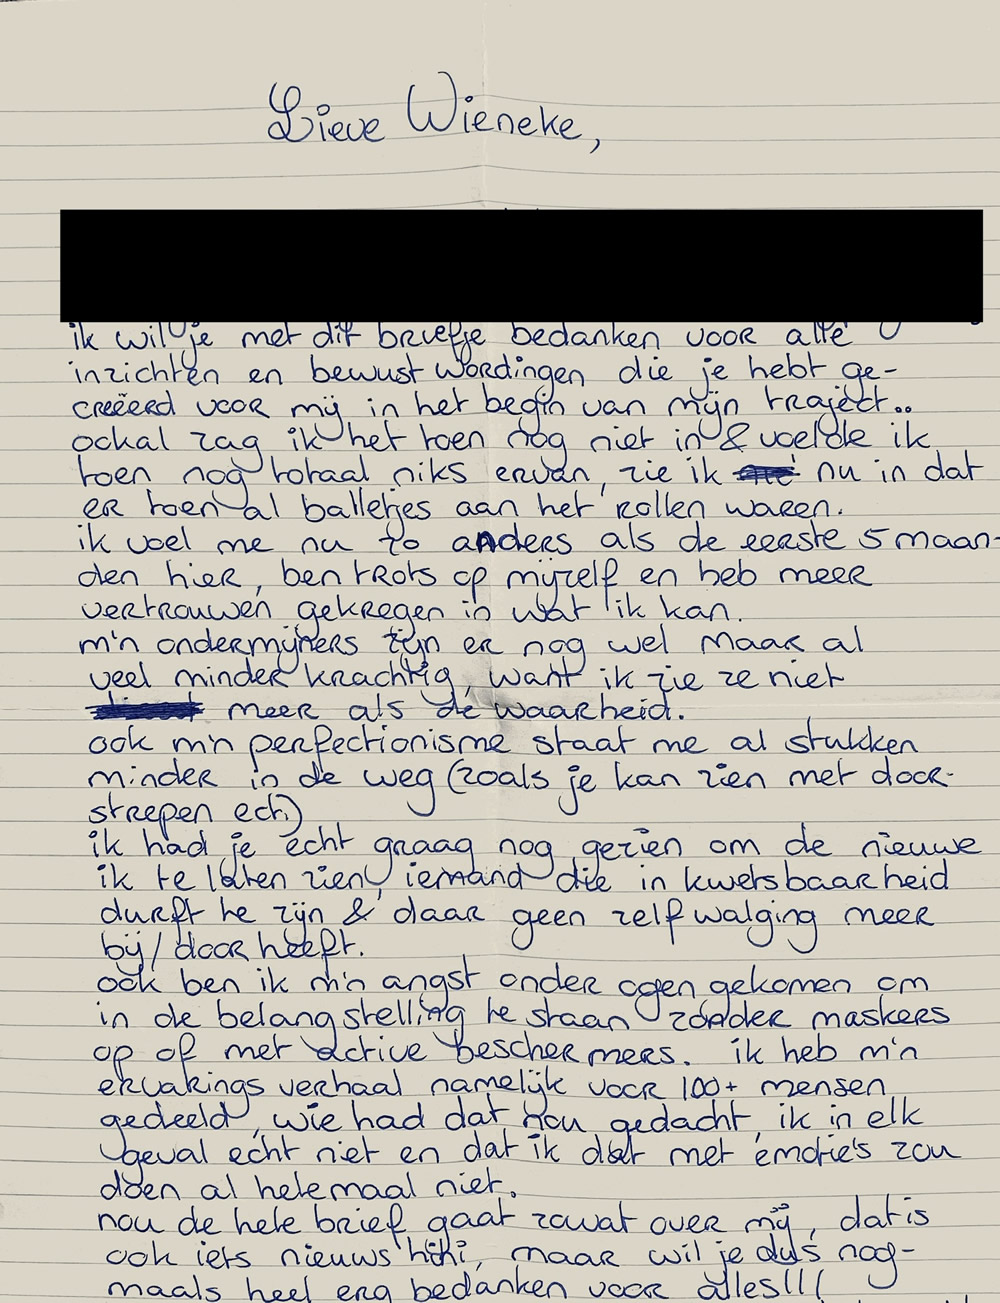 Lieve Wieneke,
ik wil je met dit briefje bedanken voor alle
inzichten en bewustwordingen die je hebt ge-
creëerd voor mij in het begin van mijn traject..
ookal zag ik het toen nog niet in & voelde ik
toen nog totaal niks ervan, zie ik nu in dat
er toen al balletjes aan het rollen waren.
ik voel me nu zo anders als de eerste 5 maan-
den hier, ben trots op mijzelf en heb meer
vertrouwen gekregen in wat ik kan.
m'n ondermijners zijn er nog wel maar al
veel minder krachtig, want ik zie ze niet
meer als de waarheid.
ook m'n perfectionisme staat me al stukken
minder in de weg (zoals je kan zien met door-
strepen ech)
ik had je echt graag nog gezien om de nieuwe
ik te laten zien, iemand die in kwetsbaarheid
durft te zijn & daar geen zelfwalging meer
bij/door heeft.
ook ben ik m'n angst onder ogen gekomen om
in de belangstelling te staan zonder maskers
op of met active beschermers. ik heb m'n
ervarings verhaal namelijk voor 100+ mensen
gedeeld, wie had dat nou gedacht, ik in elk
geval echt niet en dat ik dat met emotie's zou
doen al helemaal niet.
nou de hele brief gaat zowat over mij, dat is
ook iets nieuws hihi, maar wil je dus nog-
maals heel erg bedanken voor alles!!!